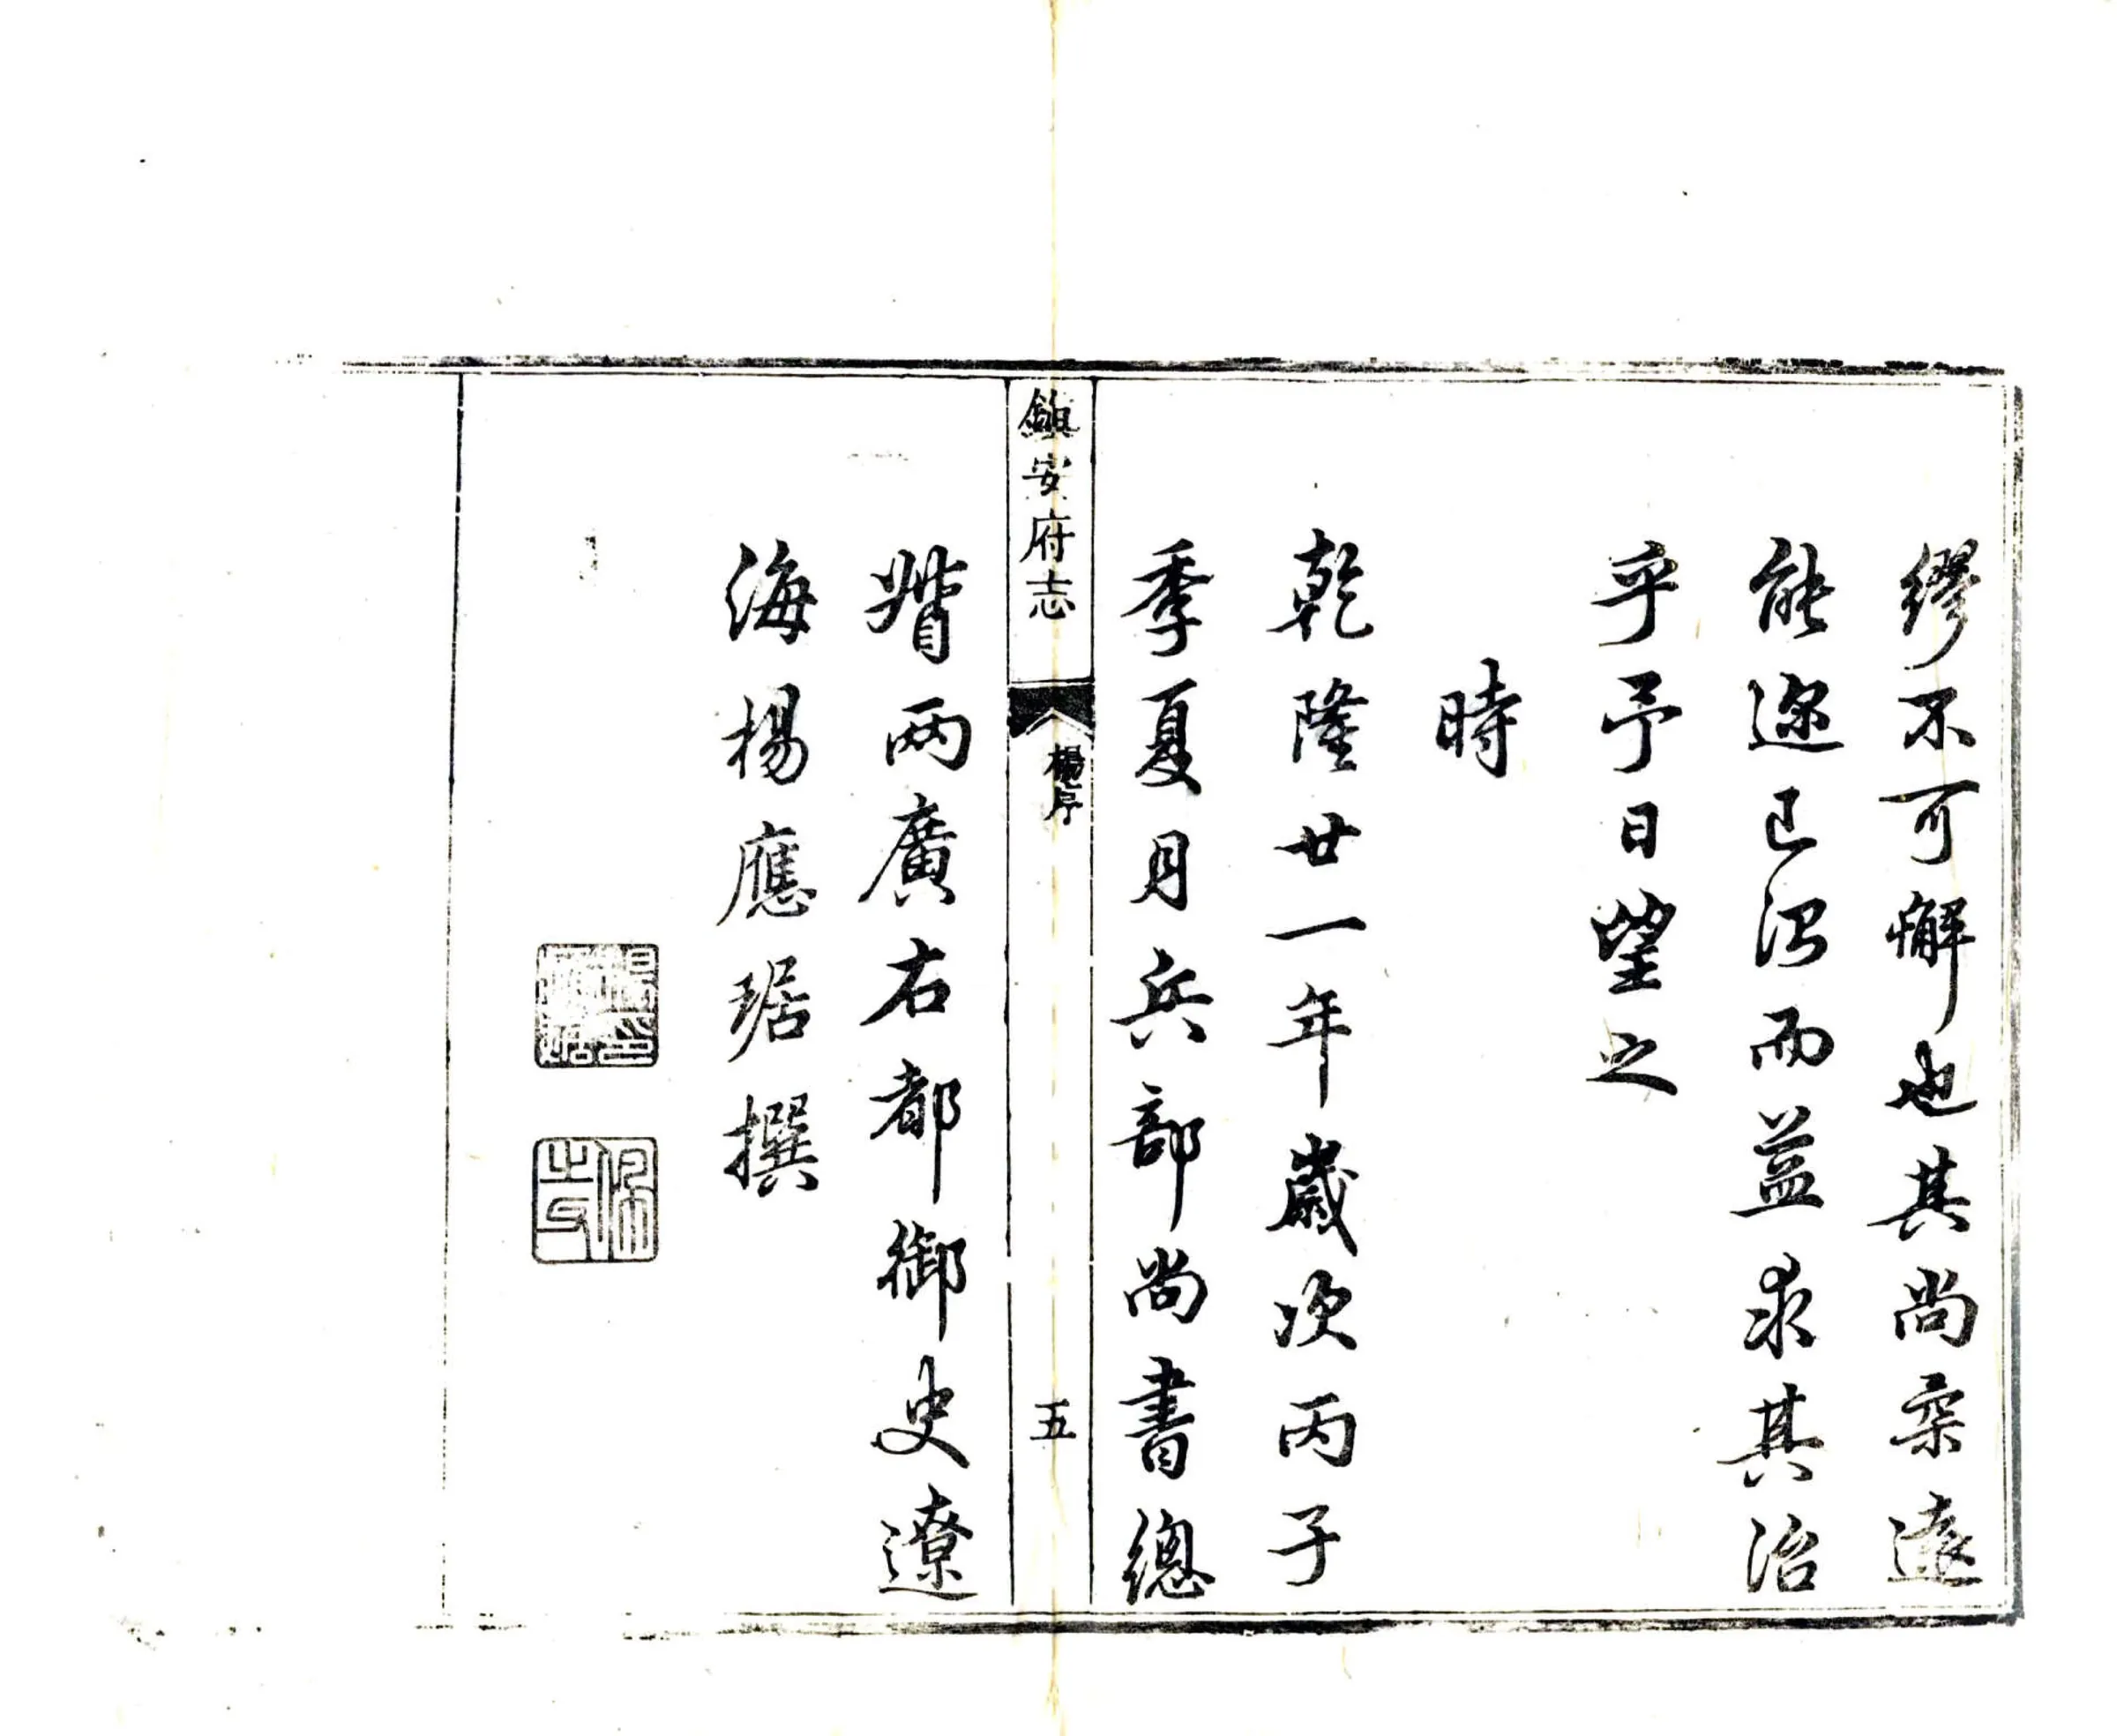 繆不可懈也其尚柔遠
能邇已治而益求其治
乎予日望之
時
乾隆廿一年歲次丙子
季夏月兵部尚書總
鎮安府志
楊序
五
督兩廣右都御史遼
海楊應琚撰
楊印應琚